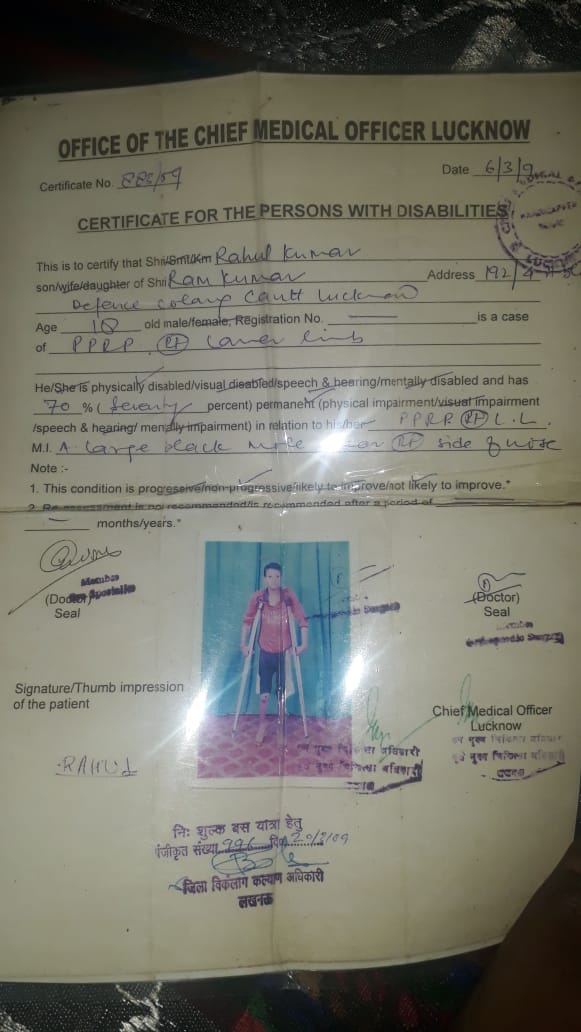 OFFICE OF THE CHIEF MEDICAL OFFICER LUCKNOW
Certificate No. 885/09
Date 6/3/9
CERTIFICATE FOR THE PERSONS WITH DISABILITIES
This is to certify that Shri/Smt/Km Rahul Kumar
son/wife/daughter of Shri Ram Kumar Address 192/4
Defence colany Cantt Lucknow
Age 18 old male/female, Registration No. is a case
of PPRP Rt Lower limb
He/She is physically disabled/visual disabled/speech & hearing/mentally disabled and has
70 % ( Seventy percent) permanent (physical impairment/visual impairment
/speech & hearing/ mentally impairment) in relation to his/her PPRP Rt L.L.
M.I. A large black mole near Rt side of nose
Note :-
1. This condition is progressive/non-progressive/likely to improve/not likely to improve.*
2. Re-assessment is not recommended/is recommended after a period of
months/years.*
Member
(Doctor)
Seal
(Doctor)
Seal
Member
Orthopaedic Surgeon
Signature/Thumb impression
of the patient
Chief Medical Officer
Lucknow
RAHUL
नि: शुल्क बस यात्रा हेतु
पंजीकृत संख्या 996 दि० 20/3/09
जिला विकलांग कल्याण अधिकारी
लखनऊ